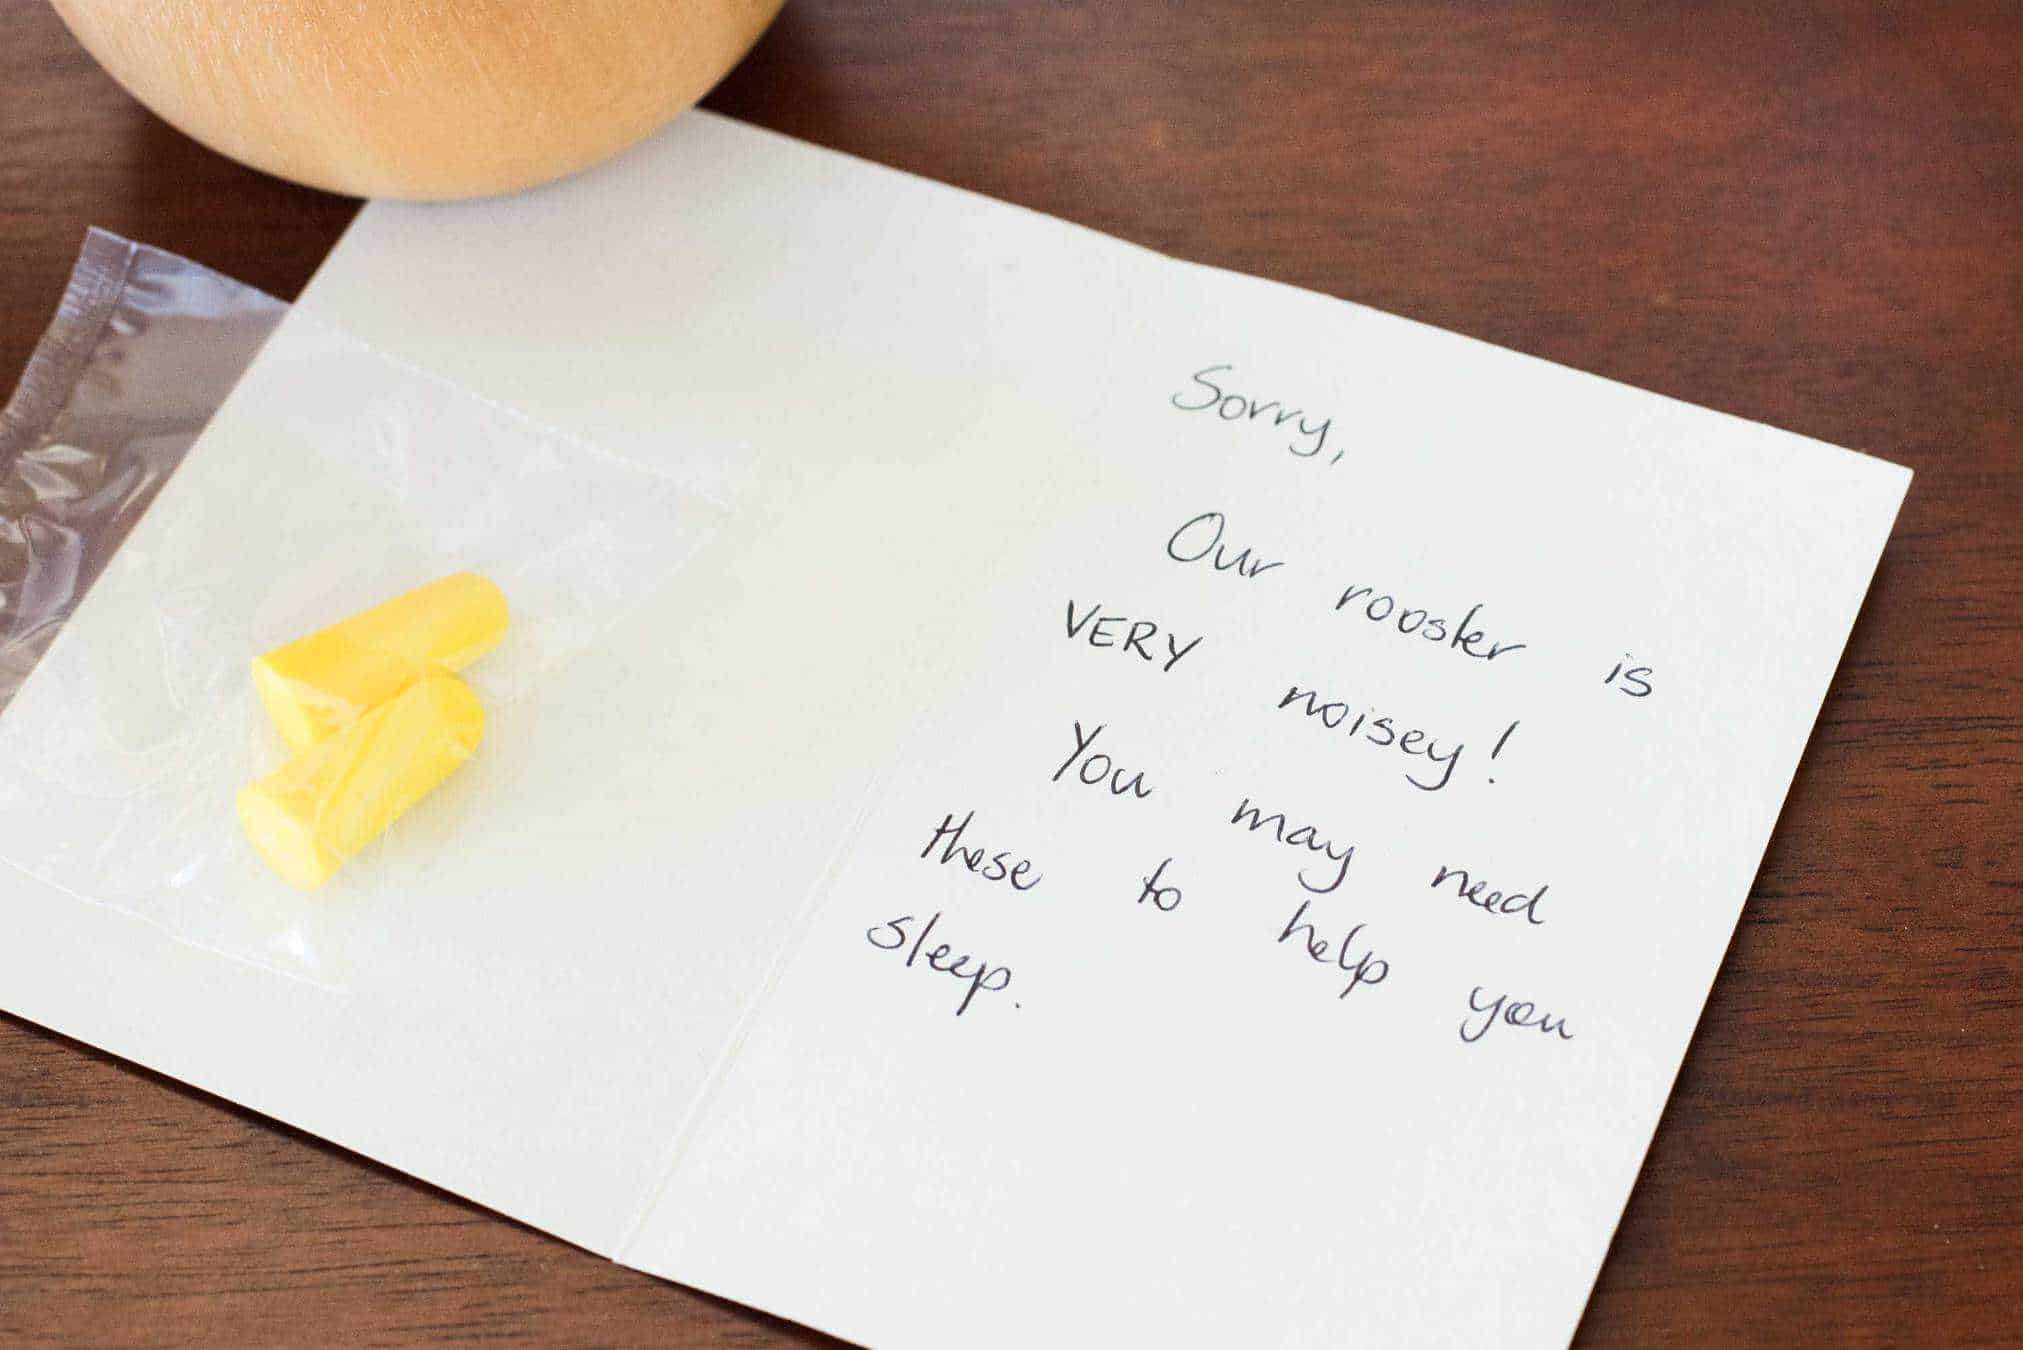 Sorry,
Our rooster is
VERY noisey!
You may need
these to help you
sleep.